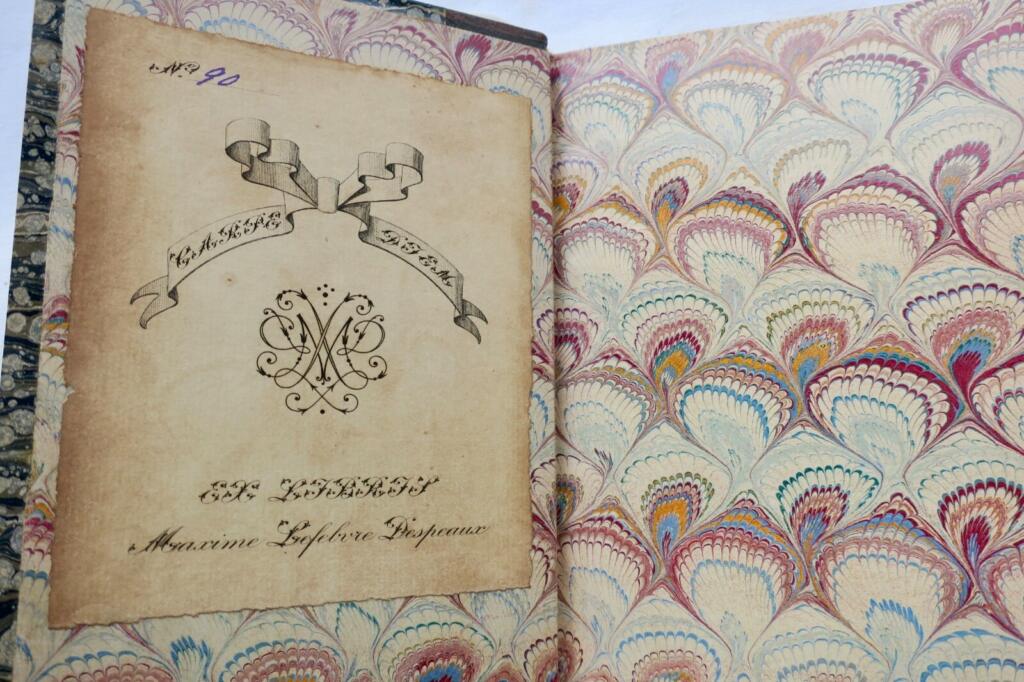 N.º 90
CARPE DIEM
EX LIBRIS
Maxime Lefebvre Despeaux